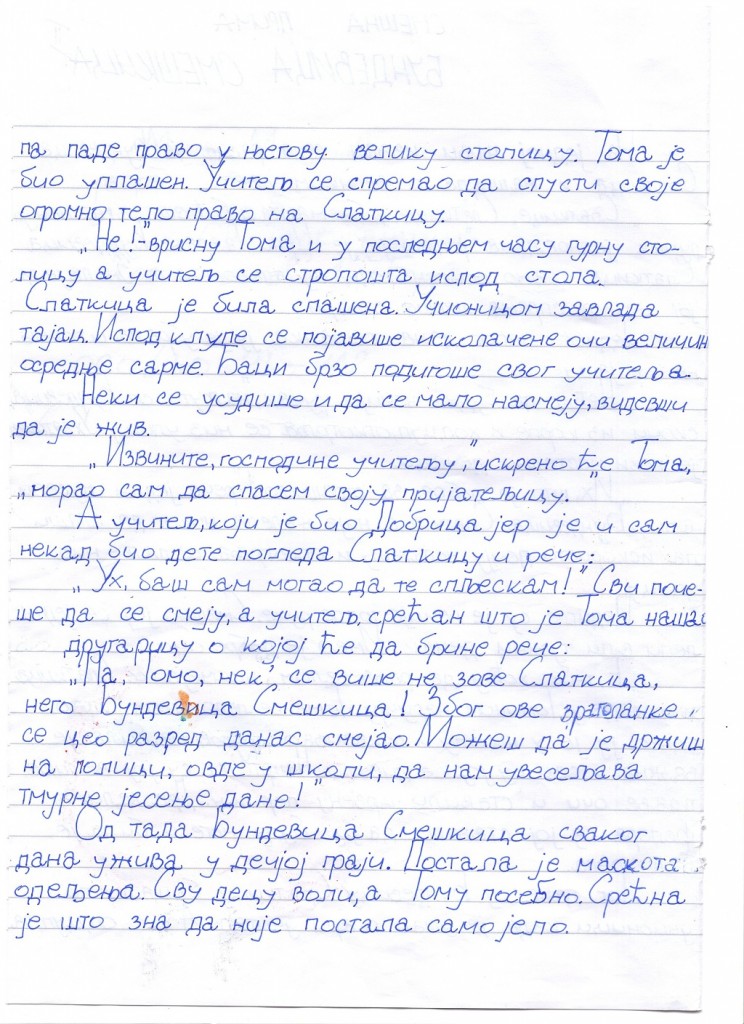 па паде право у његову велику столицу. Тома је
био уплашен. Учитељ се спремао да спусти своје
огромно тело право на Слаткицу.
„Не!"-врисну Тома и у последњем часу гурну сто-
лицу а учитељ се стропошта испод стола.
Слаткица је била спашена. Учионицом завлада
тајац. Испод клупе се појавише исколачене очи величин
осредње сарме. Ђаци брзо подигоше свог учитеља.
Неки се усудише и да се мало насмеју, видевши
да је жив.
„Извините, господине учитељу", искрено ће Тома,
„морао сам да спасем своју пријатељицу."
А учитељ, који је био Добрица јер је и сам
некад био дете погледа Слаткицу и рече:
„Ух, баш сам могао да те спљескам!" Сви поче-
ше да се смеју, а учитељ, срећан што је Тома наша
другарицу о којој ће да брине рече:
„Па, Томо, нек' се више не зове Слаткица,
него Бундевица Смешкица! Због ове враголанке
се цео разред данас смејао. Можеш да је држиш
на полици, овде у школи, да нам увесељава
тмурне јесење дане!"
Од тада Бундевица Смешкица сваког
дана ужива у дечјој граји. Постала је маскота
одељења. Сву децу воли, а Тому посебно. Срећна
је што зна да није постала само јело.